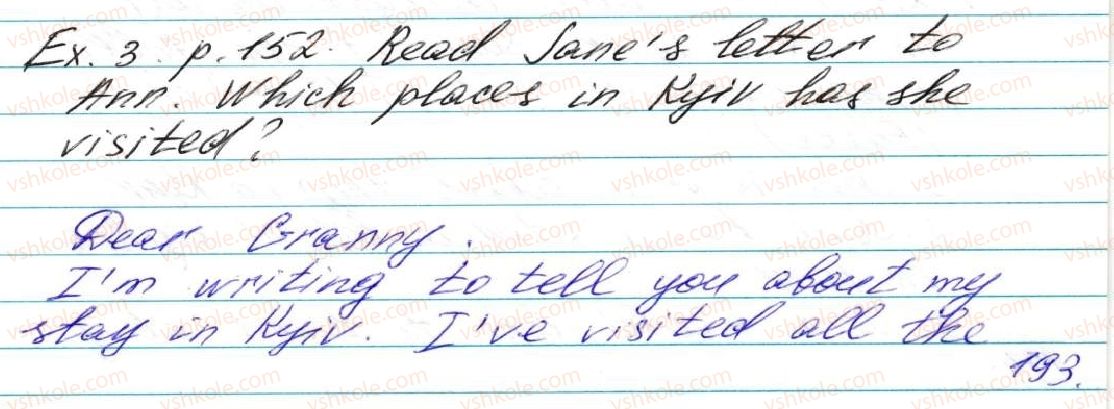 Ex. 3. p. 152. Read Jane's letter to
Ann. Which places in Kyiv has she
visited?
Dear Granny.
I'm writing to tell you about my
stay in Kyiv. I've visited all the
193.